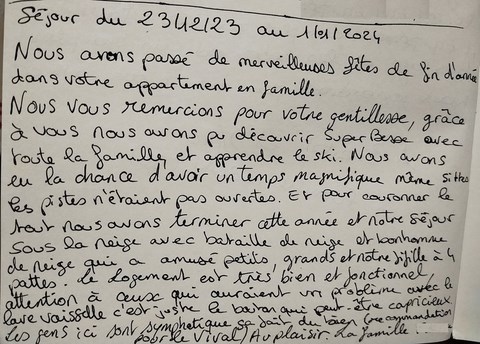 Séjour du 23/12/23 au 1/01/2024
Nous avons passé de merveilleuses fêtes de fin d'année
dans votre appartement en famille.
Nous vous remercions pour votre gentillesse, grâce
à vous nous avons pu découvrir SuperBesse avec
toute la famille, et apprendre le ski. Nous avons
eu la chance d'avoir un temps magnifique même si ttes
les pistes n'étaient pas ouvertes. Et pour couronner le
tout nous avons terminer cette année et notre séjour
sous la neige avec bataille de neige et bonhomme
de neige qui a amusé petits, grands et notre fifille à 4
pattes. Le logement est très bien et fonctionnel,
attention à ceux qui auraient un problème avec le
lave vaisselle c'est juste le bouton qui peut-être capricieux.
Les gens ici sont symphatique sa fait du bien (recommandation
pour le Vival) Au plaisir. La famille